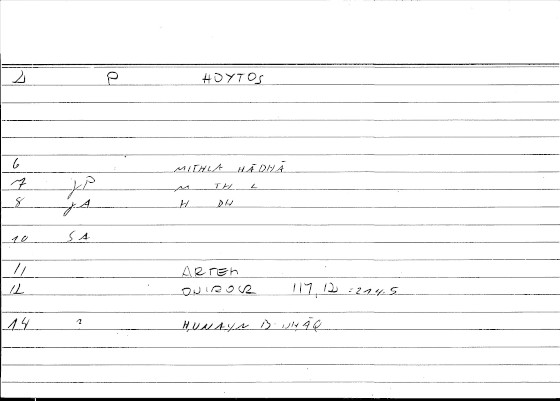 2 P HOYTOS
6 MITHLA HĀDHĀ
7 γP M TH L
8 γA H DH
10 SA
11 ARTEM
12 ONIROCR 117,12 = 214.5
14 ? HUNAYN B ISḤĀQ